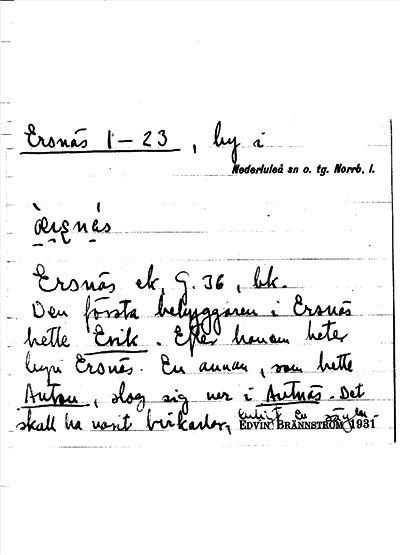 Ersnäs 1–23, by i
Nederluleå sn o. tg. Norrb. l.
Ersnäs ek. G. 36, bk.
Den första bebyggaren i Ersnäs
hette Erik. Efter honom heter
byn Ersnäs. En annan, som hette
Anton, slog sig ner i Antnäs. Det
skall ha varit birkarlar, enligt en sägen.
EDVIN BRÄNNSTRÖM 1931